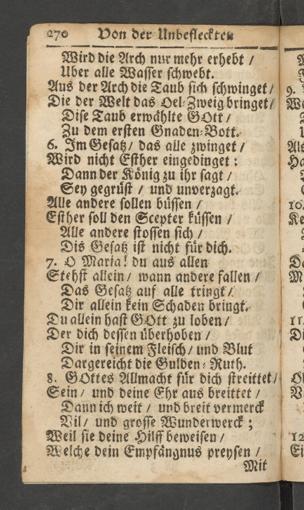 270 Von der Unbefleckten
Wird die Arch nur mehr erhebt /
Uber alle Wasser schwebt.
Aus der Arch die Taub sich schwinget /
Die der Welt das Oel-Zweig bringet /
Dise Taub erwählte GOtt /
Zu dem ersten Gnaden-Bott.
6. Im Gesatz / das alle zwinget /
Wird nicht Esther eingedinget:
Dann der König zu ihr sagt /
Sey gegrüst / und unverzagt.
Alle andere sollen büssen /
Esther soll den Scepter küssen /
Alle andere stossen sich /
Dis Gesatz ist nicht für dich.
7. O Maria! du aus allen
Stehst allein / wann andere fallen /
Das Gesatz auf alle tringt /
Dir allein kein Schaden bringt.
Du allein hast GOtt zu loben /
Der dich dessen überhoben /
Dir in seinem Fleisch / und Blut
Dargereicht die Gulden-Ruth.
8. GOttes Allmacht für dich streittet /
Sein / und deine Ehr aus breittet /
Dann ich weit / und breit vermerck
Vil / und grosse Wunderwerck;
Weil sie deine Hilff beweisen /
Welche dein Empfängnus preysen /
Mit